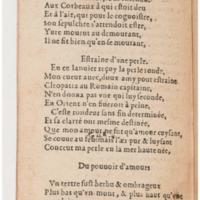 Aux Corbeaux à qui estoit deu
Et à l'air, qui pour le cognoistre,
son sepulchre s'attendoit estre,
Yure mourut au demourant,
Il ne fit bien qu'en se mourant,
Estraine d'une perle.
En ce Ianuier reçoy la perle ronde,
Mon cueur auec, doux amy pour estraine
Cleopatra au Romain capitaine,
N'en donna pas vne qui luy seconde,
En Orient n'en fineroit à peine.
C'est rondeur sans fin determinée,
Et sa clarté ont mesme destinée,
Que mon amour, ne fut qu'amour luysant,
Resemblant à l'aez pur & luysant
Couceut ma perle en la mer hautenée,
Du pouuoir d'amours
Vn tertre fust herbu & ombrageux
Plus bas qu'en mont, & plus haut qu'vne